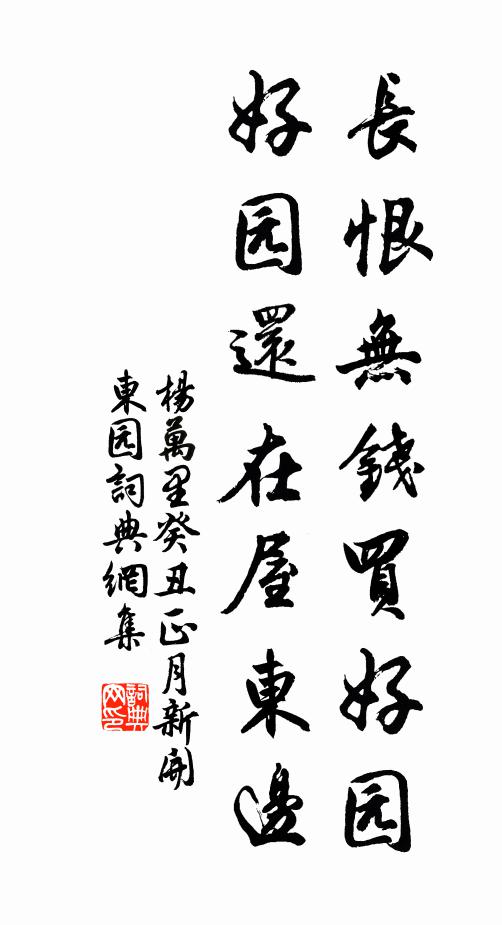 長恨無錢買好园
好园還在屋東邊
楊萬里癸丑正月新開
東园詞典網集
詞典网印